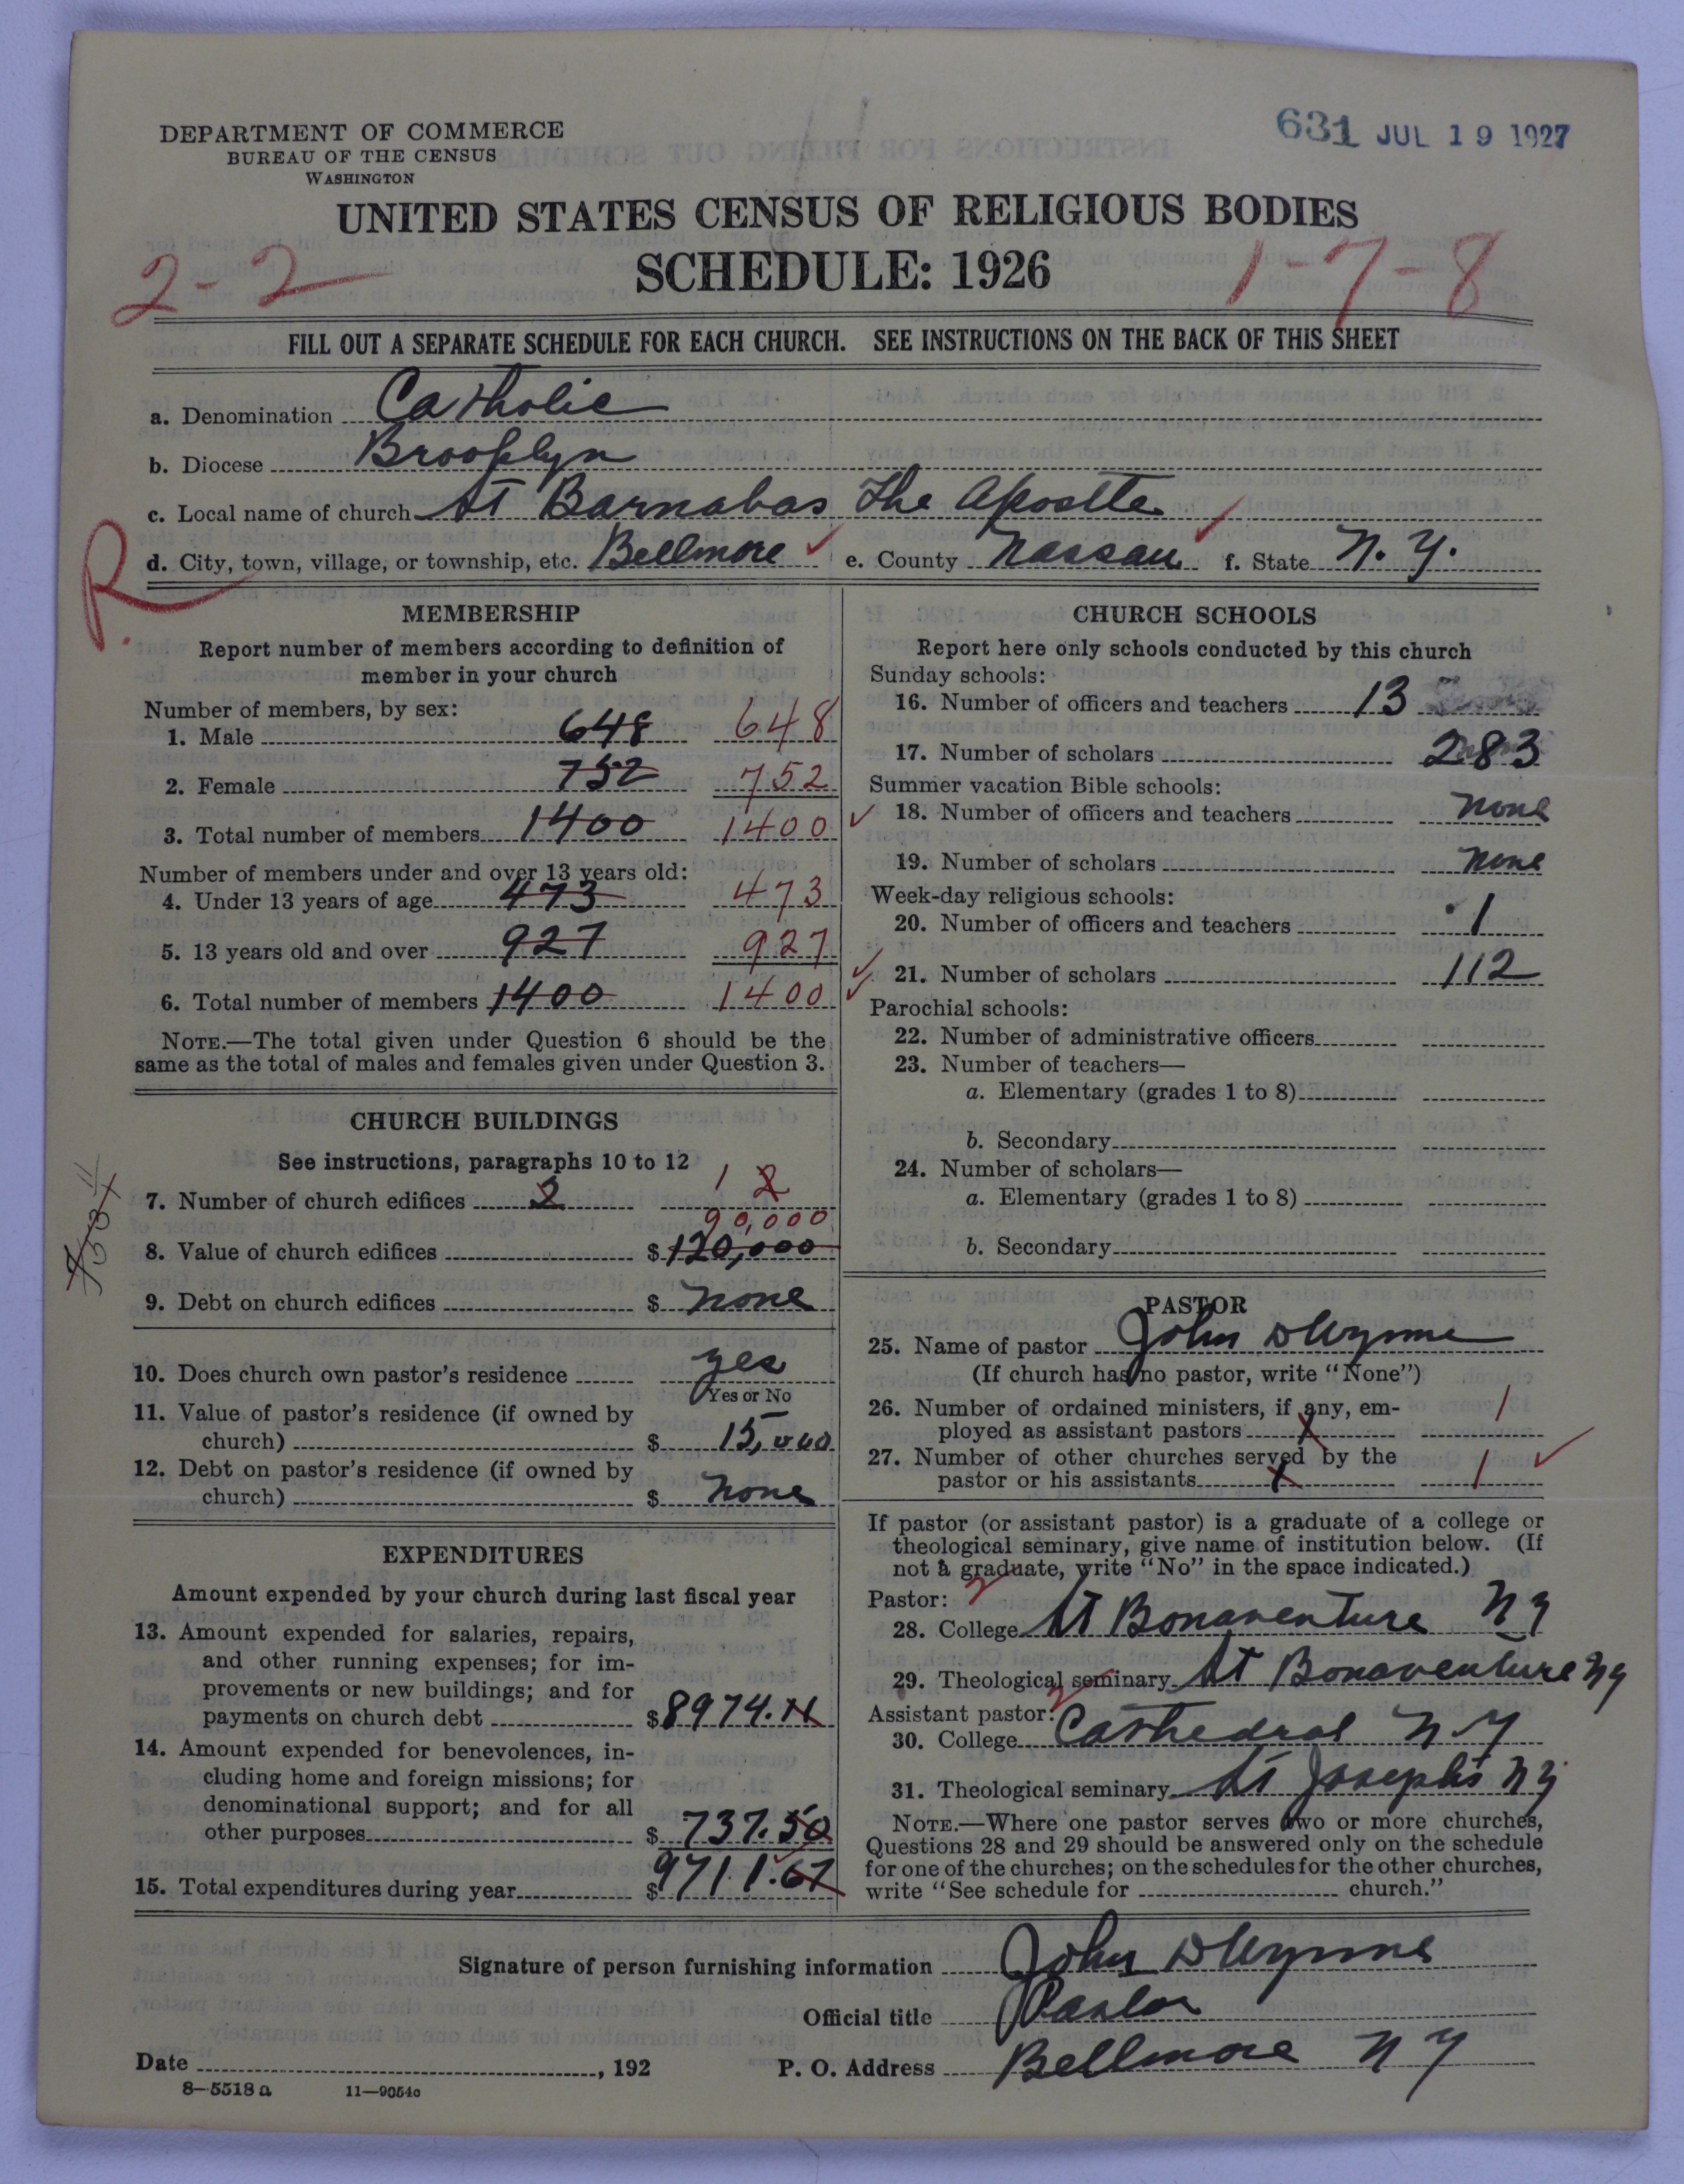 631 JUL 19 1927
DEPARTMENT OF COMMERCE
BUREAU OF THE CENSUS
WASHINGTON
UNITED STATES CENSUS OF RELIGIOUS BODIES
SCHEDULE: 1926
2-2
1-7-8
FILL OUT A SEPARATE SCHEDULE FOR EACH CHURCH. SEE INSTRUCTIONS ON THE BACK OF THIS SHEET
a. Denomination Catholic
b. Diocese Brooklyn
c. Local name of church St Barnabas The Apostle
R.
d. City, town, village, or township, etc. Bellmore e. County Nassau f. State N. Y.
MEMBERSHIP
Report number of members according to definition of
member in your church
Number of members, by sex:
1. Male 648 648
2. Female 752 752
3. Total number of members 1400 1400
Number of members under and over 13 years old:
4. Under 13 years of age 473 473
5. 13 years old and over 927 927
6. Total number of members 1400 1400
NOTE.—The total given under Question 6 should be the
same as the total of males and females given under Question 3.
CHURCH BUILDINGS
See instructions, paragraphs 10 to 12
7. Number of church edifices 2 1 2
90,000
8. Value of church edifices $ 120,000
9. Debt on church edifices $ none
10. Does church own pastor's residence yes
Yes or No
11. Value of pastor's residence (if owned by
church) $ 15,000
12. Debt on pastor's residence (if owned by
church) $ none
EXPENDITURES
Amount expended by your church during last fiscal year
13. Amount expended for salaries, repairs,
and other running expenses; for im-
provements or new buildings; and for
payments on church debt $ 8974.
14. Amount expended for benevolences, in-
cluding home and foreign missions; for
denominational support; and for all
other purposes $ 737.50
15. Total expenditures during year $ 9711.67
CHURCH SCHOOLS
Report here only schools conducted by this church
Sunday schools:
16. Number of officers and teachers 13
17. Number of scholars 283
Summer vacation Bible schools:
18. Number of officers and teachers none
19. Number of scholars none
Week-day religious schools:
20. Number of officers and teachers 1
21. Number of scholars 112
Parochial schools:
22. Number of administrative officers
23. Number of teachers—
a. Elementary (grades 1 to 8)
b. Secondary
24. Number of scholars—
a. Elementary (grades 1 to 8)
b. Secondary
PASTOR
25. Name of pastor John D Wynne
(If church has no pastor, write "None")
26. Number of ordained ministers, if any, em-
ployed as assistant pastors 1 1
27. Number of other churches served by the
pastor or his assistants 1 1
If pastor (or assistant pastor) is a graduate of a college or
theological seminary, give name of institution below. (If
not a graduate, write "No" in the space indicated.)
Pastor: 2
28. College St Bonaventure NY
29. Theological seminary St Bonaventure NY
Assistant pastor: 2
30. College Cathedral NY
31. Theological seminary St Josephs NY
NOTE.—Where one pastor serves two or more churches,
Questions 28 and 29 should be answered only on the schedule
for one of the churches; on the schedules for the other churches,
write "See schedule for church."
Signature of person furnishing information John D Wynne
Official title Pastor
Date , 192 P. O. Address Bellmore NY
8-5518a 11—9054c